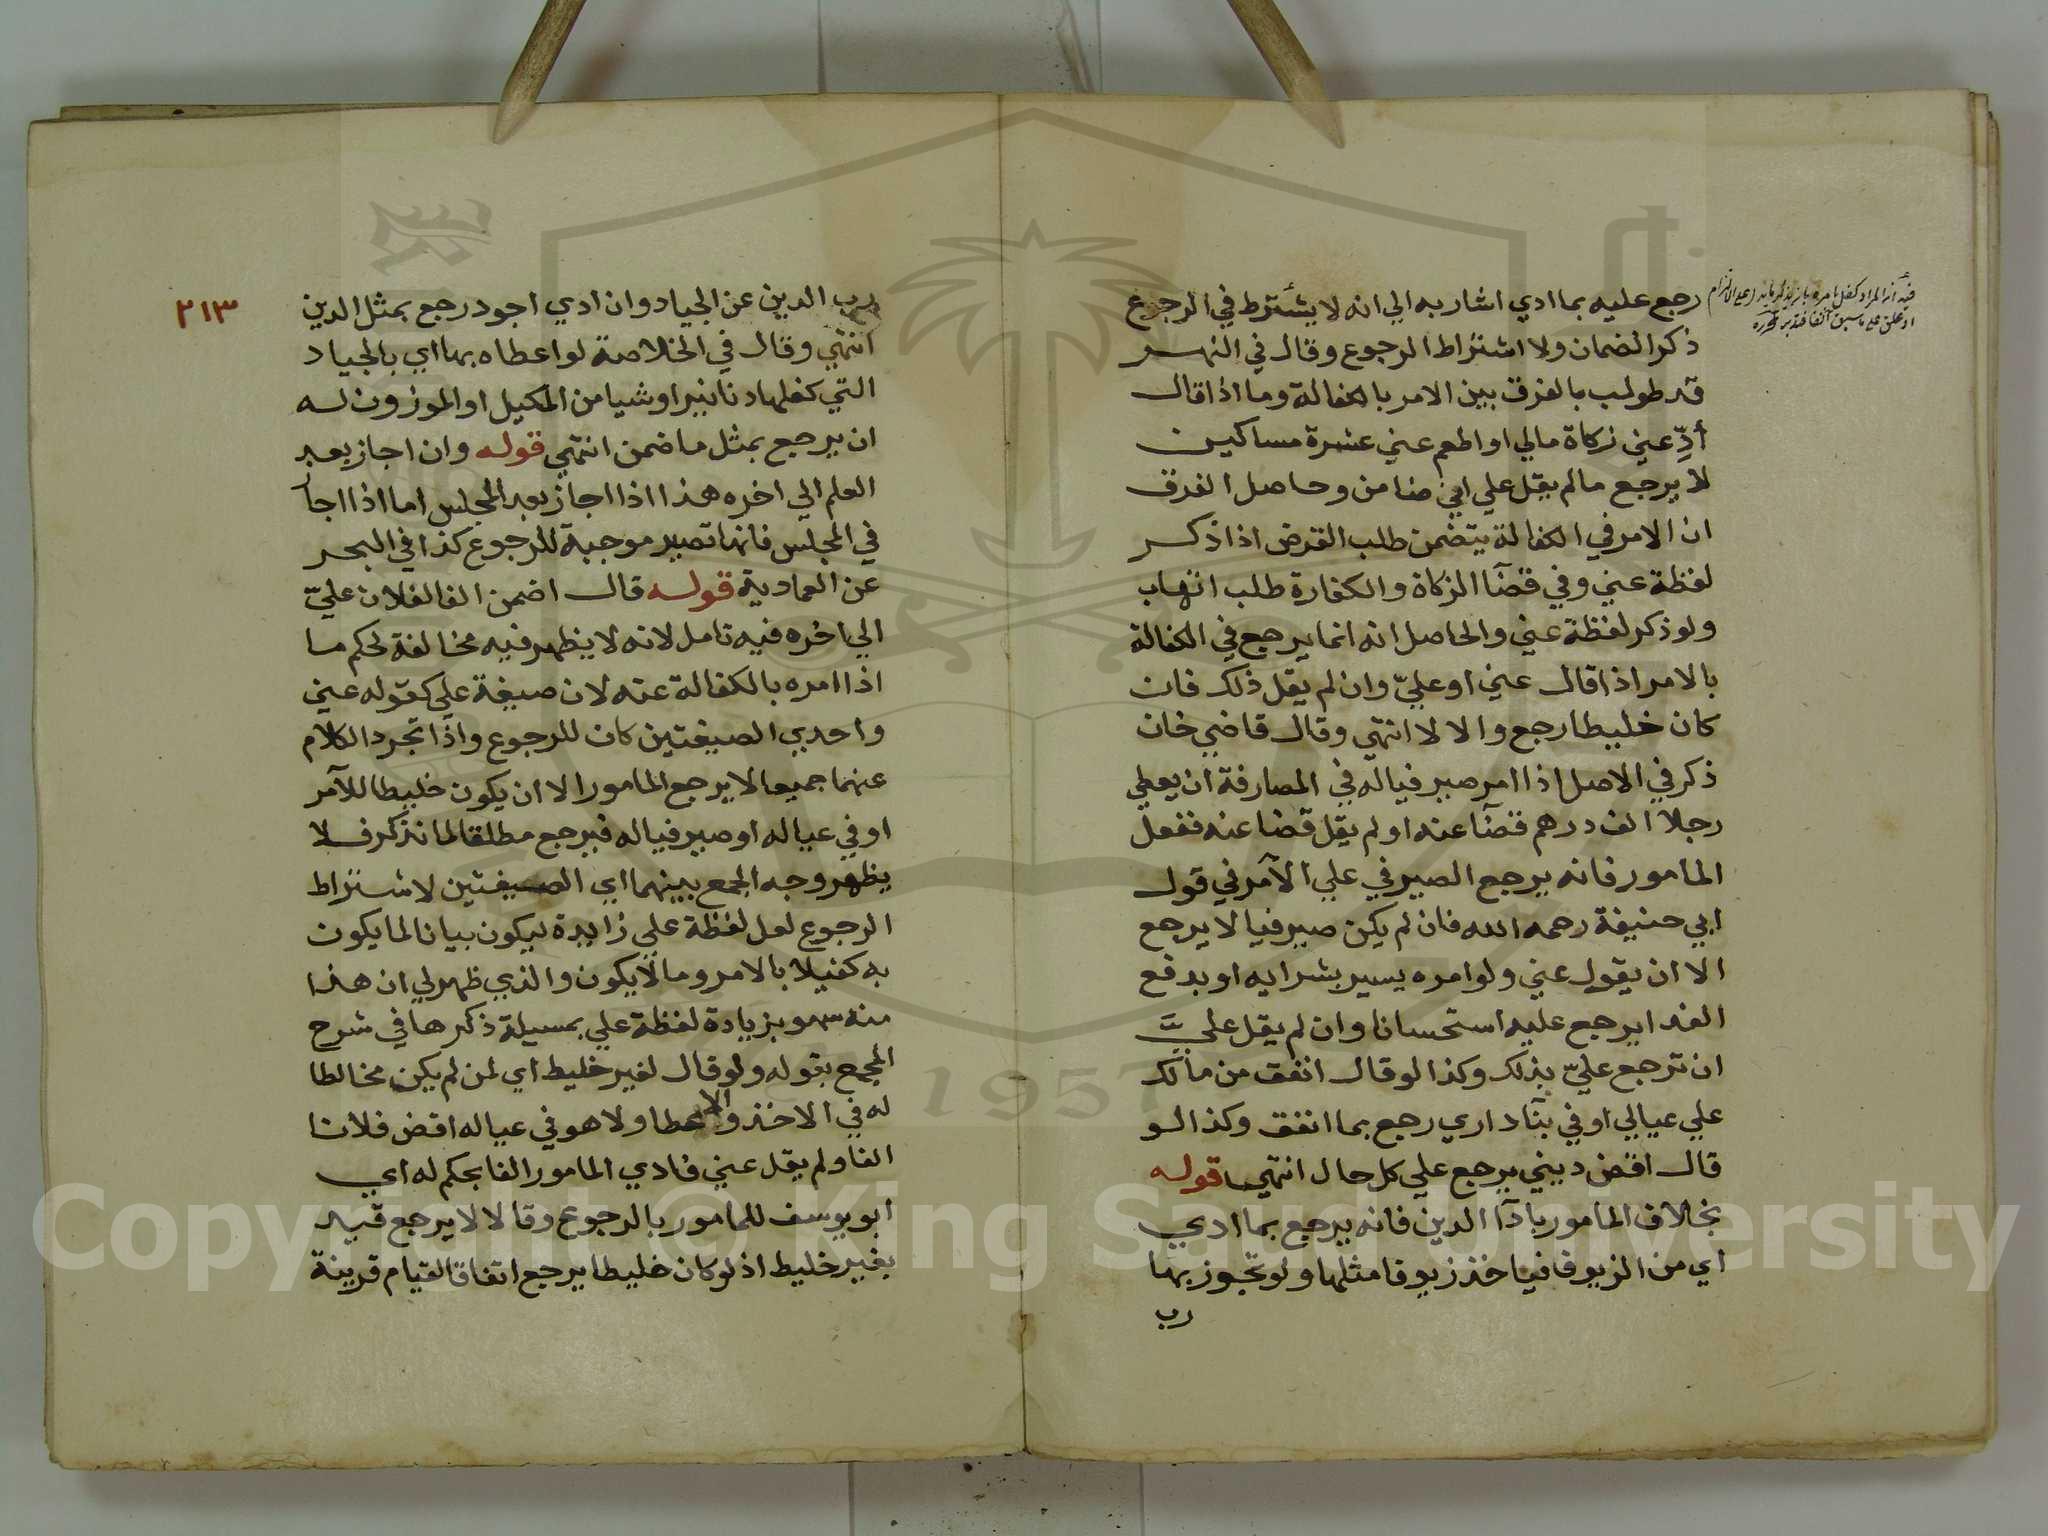 رجع عليه بما ادي اشار به الي انه لا يشترط في الرجوع
ذكر الضمان ولا اشتراط الرجوع وقال في النهر
قد طولب بالفرق بين الامر بالكفالة وما اذا قال
أدِّ عني زكاة مالي او اطعم عني عشرة مساكين
لا يرجع ما لم يقل علي اني ضامن وحاصل الفرق
ان الامر في الكفالة يتضمن طلب القرض اذا ذكر
لفظة عني وفي قضآ الزكاة والكفارة طلب اتهاب
ولو ذكر لفظة عني والحاصل انه انما يرجع في الكفالة
بالامر اذا قال عني او عليّ وان لم يقل ذلك فان
كان خليطا رجع والا لا انتهي وقال قاضي خان
ذكر في الاصل اذا امر صيرفيا له في المصارفة ان يعطي
رجلا الف درهم قضآ عنه او لم يقل قضا عنه ففعل
المامور فانه يرجع الصيرفي علي الآمر في قول
ابي حنيفة رحمه الله فان لم يكن صيرفيا لا يرجع
الا ان يقول عني ولو امره يسير بشرايه او بدفع
الفدا يرجع عليه استحسانا وان لم يقل عليَّ
ان ترجع عليّ بذلك وكذا لو قال انفق من مالك
علي عيالي او في بنآ داري رجع بما انفق وكذا لو
قال اقض ديني يرجع علي كل حال انتهي قوله
بخلاف المامور باداآ الدين فانه يرجع بما ادي
اي من الزيوف فياخذ زيوفا مثلها ولو تجوز بها
رب
٢١٣
رب الدين عن الجياد وان ادي اجود رجع بمثل الدين
انتهي وقال في الخلاصة لو اعطاه بها اي بالجياد
التي كفلها دنانير او شيا من المكيل او الموزون له
ان يرجع بمثل ما ضمن انتهي قوله وان اجاز بعد
العلم الي اخره هذا اذا اجاز بعد المجلس اما اذا اجا
في المجلس فانها تصير موجبة للرجوع كذا في البحر
عن العمادية قوله قال اضمن الفا لفلان عليّ
الي اخره فيه تامل لانه لا يظهر فيه مخالفة لحكم ما
اذا امره بالكفالة عنه لان صيغة علي كقوله عني
واحدي الصيغتين كان للرجوع واذا تجرد الكلام
عنهما جميعا لا يرجع المامور الا ان يكون خليطا للآمر
او في عياله او صيرفيا له فيرجع مطلقا لما نذكر فلا
يظهر وجه الجمع بينهما اي الصيغتين لاشتراط
الرجوع لعل لفظة علي زايدة ليكون بيانا لما يكون
به كفيلا بالامر وما لا يكون والذي ظهر لي ان هذا
منه سهو بزيادة لفظة علي بمسيلة ذكرها في شرح
المجمع بقوله ولو قال لغير خليط اي لمن لم يكن مخالطا
له في الاخذ والاعطا ولا هو في عياله اقض فلانا
الفا ولم يقل عني فادي المامور الفا بحكم له اي
ابو يوسف للمامور بالرجوع وقالا لا يرجع قيد
بغير خليط اذ لو كان خليطا يرجع اتفاقا لقيام قرينة
1957
Copyright © King Saud University